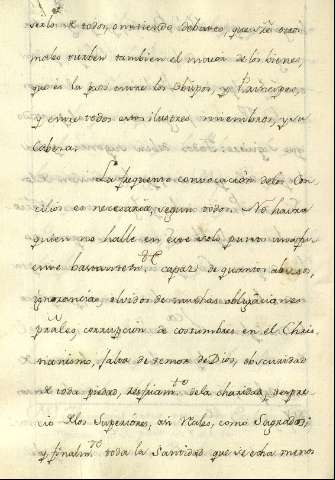 serlos de todos, omitiendo de barco, que se otasi
males turben tambien el mayor de los bienes,
que es la paz entre los Obispos, y Principes,
y entre todos estos ilustres miembros, y su
Cabeza.
La frequente convocacion de los Con-
cilios es necesaria, segun todos. No havra
quien no halle en este solo punto una fu-
ente bastantem.te capaz de quantos abusos,
ignorancias, olvidos de muchas obligaciones
prâles, corrupcion de costumbres en el Chris
tianismo, falta de temor de Dios, obscuridad
de toda piedad, resfriam.to de la charidad, despre-
cio de los Superiores, asi Reales, como Sagrados;
y finalm.te toda la Santidad que se echa menos